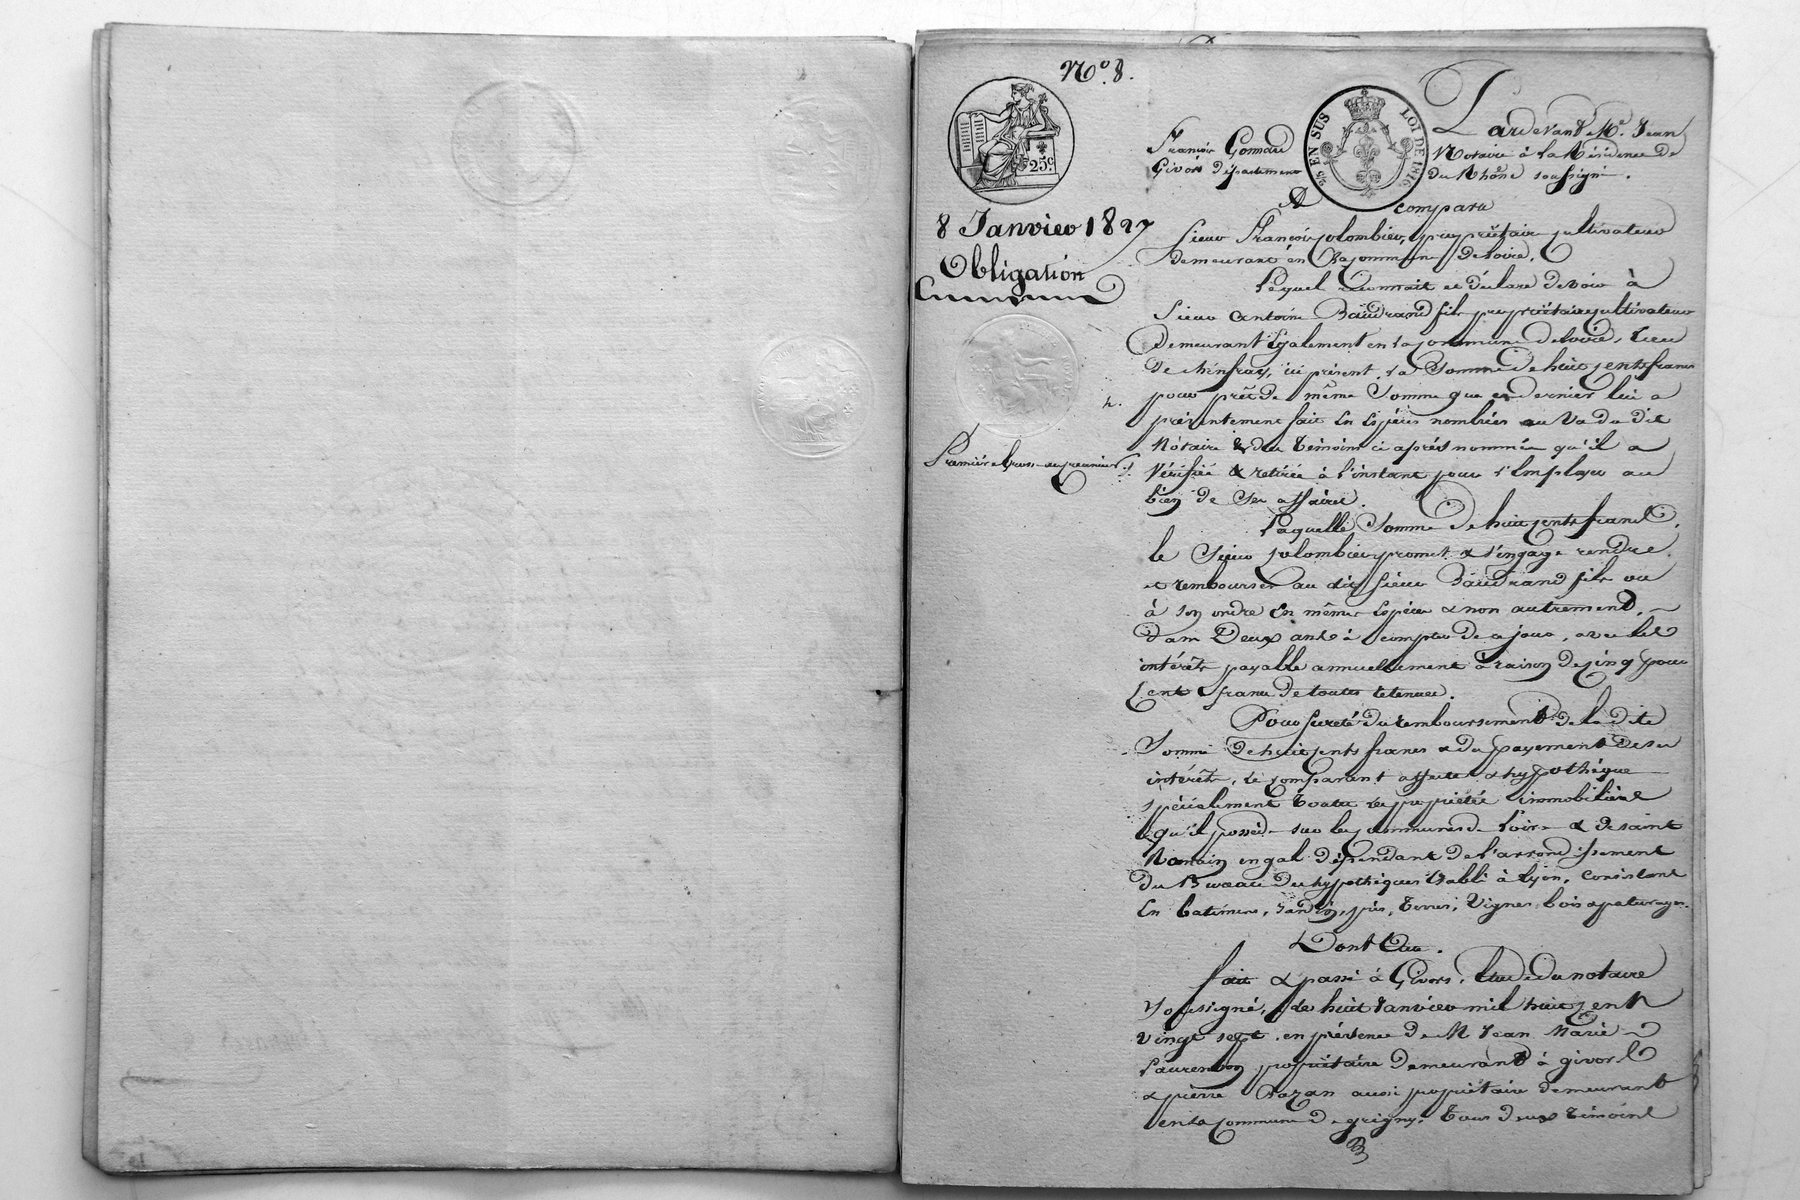 N.º 8.
25c.
5/2 EN SUS LOI DE 1816
8 Janvier 1827
Obligation
Pardevant Me. Jean
François Gonnard Notaire à la Résidence de
Givors département du Rhône soussigné.
A comparu
Sieur François Colombier, propriétaire cultivateur
demeurant en la commune de Loire,
Lequel reconnait et déclare devoir à
Sieur Antoine Baudrand fils propriétaire cultivateur
Demeurant également en la commune de Loire, lieu
de chinfray, ici présent, la Somme de huit cents francs
pour prêt de même Somme que ce dernier lui a
présentement fait en Espèces nombrées au Vu du dit
Notaire & des témoins ci après nommés qu'il a
Vérifiée & retirée à l'instant pour l'Employer au
bien de Ses affaires.
Première Grosse au créancier
Laquelle Somme de huit cents francs,
le Sieur Colombier promet & s'engage rendre
et rembourser au dit Sieur Baudrand fils ou
à son ordre En mêmes Espèces & non autrement,
dans Deux ans à compter de ce jour, avec les
intérêts payable annuellement à raison de cinq pour
Cent francs de toutes retenues.
Pour Sureté du remboursement de la dite
Somme de huit cents francs & du payement de ses
intérêts, le comparant affecte & hypothèque
spécialement toutes les propriétés immobilières
qu'il possède sur les communes de Loire & de saint
Romain en gal dépendant de l'arrondissement
du Bureau des hypothèques Etabli à Lyon, consistant
En batimens, Jardin, prés, terres, Vignes, bois & paturages.
Dont Acte.
fait & passé à Givors, Etude du notaire
Soussigné, le huit Janvier mil huit cent
vingt sept, en présence de M Jean Marie
Laurenson propriétaire demeurant à givors
& pierre Bazan aussi propriétaire demeurant
en la commune de grigny, tous deux témoins